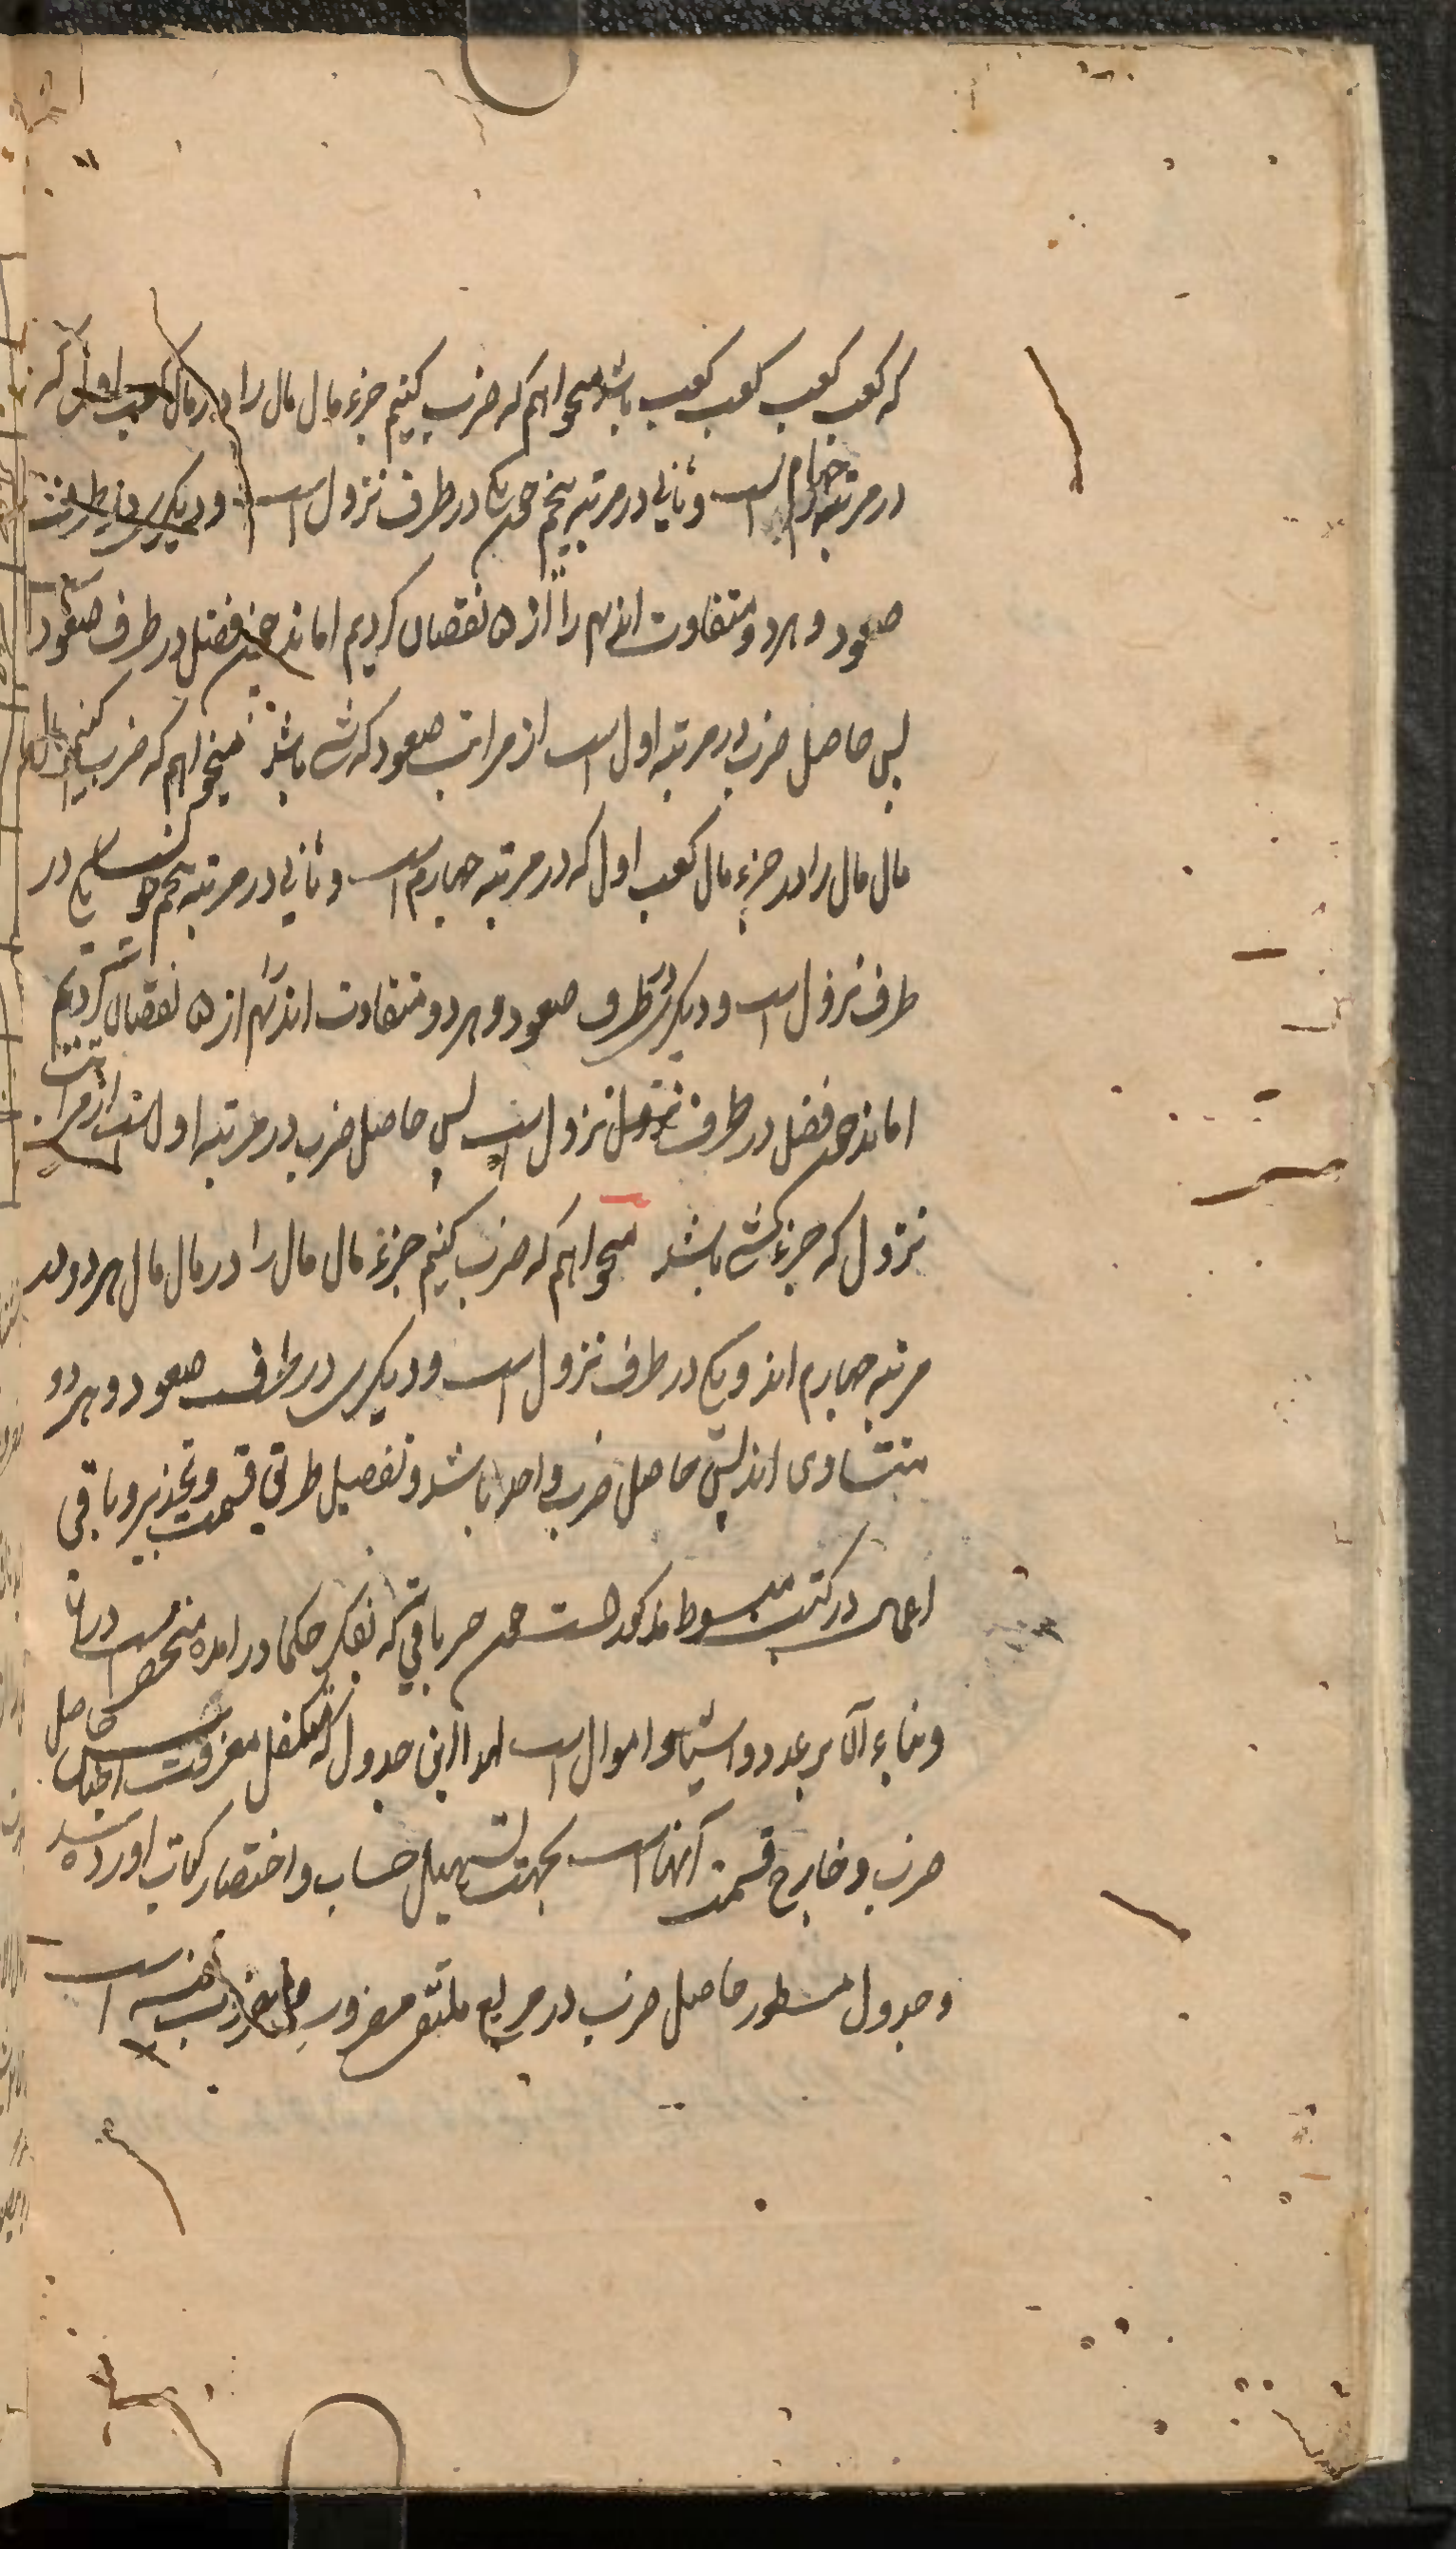 که کعب کعب کعب کعب باشد میخواهم که ضرب کنیم جزء مال مال را در مال کعب اول که
در مرتبه چهارم است و ثانی در مرتبه پنجم چون یکی در طرف نزول است و دیگری در طرف
صعود و هر دو متفاوت اند ۴ را از ۵ نقصان کردیم ا ماند چون فضل در طرف صعود
پس حاصل ضرب در مرتبه اول است از مراتب صعود که شی باشد میخواهم که ضرب کنیم
مال مال را در جزء مال کعب اول که در مرتبه چهارم است و ثانی در مرتبه پنجم چون یکی در
طرف نزول است و دیگری در طرف صعود و هر دو متفاوت اند ۴ را از ۵ نقصان کردیم
ا ماند چون فضل در طرف نزول است پس حاصل ضرب در مرتبه اول است از مراتب
نزول که جزء شی باشد میخواهم که ضرب کنیم جزء مال مال را در مال مال هر دو در
مرتبه چهارم اند و یکی در طرف نزول است و دیگری در طرف صعود و هر دو
متساوی اند پس حاصل ضرب واحد باشد و تفصیل طریق قسمت و تجذیر و باقی
اعمال در کتب مبسوط مذکور است چون جبریاتی که بفکر حکما در آمده منحصر است در
و بناء آن بر عدد و اشیا و اموال است لهذا این جدول که متکفل معرفت اجناس حاصل
ضرب و خارج قسمت آنها است بجهت تسهیل حساب و اختصار کتاب آورده شد
و جدول مسطور حاصل ضرب در مربع ملتقی مضروب و مضروب فیه است